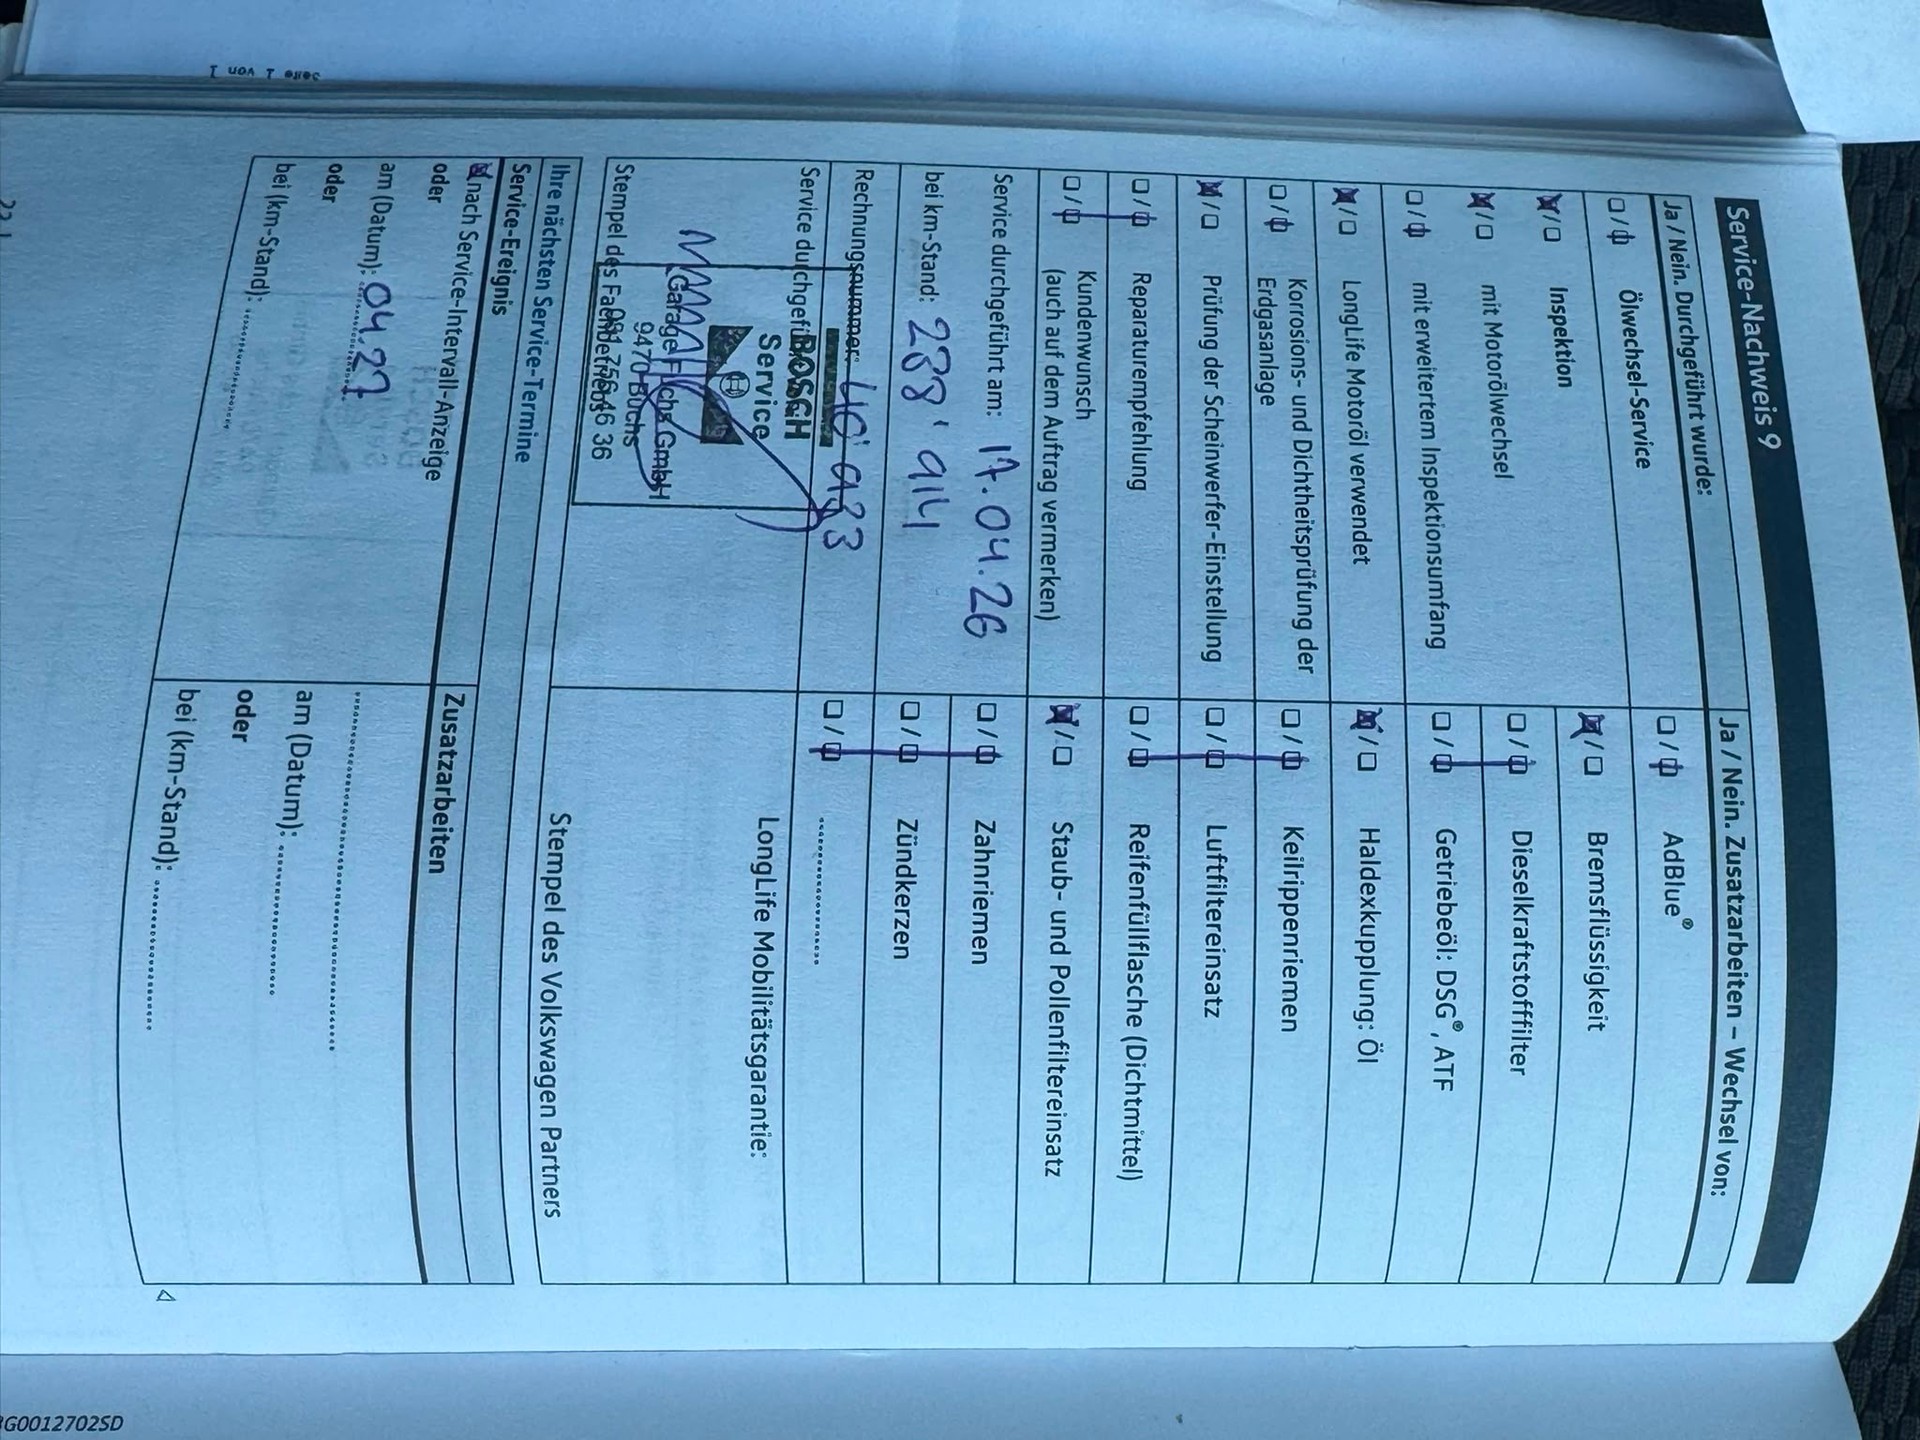 Seite 1 von 1
Service-Nachweis 9
Ja / Nein. Durchgeführt wurde:
☐ / ☒ Ölwechsel-Service
☒ / ☐ Inspektion
☒ / ☐ mit Motorölwechsel
☐ / ☒ mit erweitertem Inspektionsumfang
☒ / ☐ LongLife Motoröl verwendet
☐ / ☒ Korrosions- und Dichtheitsprüfung der
Erdgasanlage
☒ / ☐ Prüfung der Scheinwerfer-Einstellung
☐ / ☒ Reparaturempfehlung
☐ / ☒ Kundenwunsch
(auch auf dem Auftrag vermerken)
Service durchgeführt am: 17.04.26
bei km-Stand: 238'914
Rechnungsnummer: 40'933
Service durchgeführt
BOSCH
Service
Garage GmbH
9470 Buchs
081 756 46 36
Stempel des Fachbetriebs
Ja / Nein. Zusatzarbeiten – Wechsel von:
☐ / ☒ AdBlue®
☒ / ☐ Bremsflüssigkeit
☐ / ☒ Dieselkraftstofffilter
☐ / ☒ Getriebeöl: DSG®, ATF
☒ / ☐ Haldexkupplung: Öl
☐ / ☒ Keilrippenriemen
☐ / ☒ Luftfiltereinsatz
☐ / ☒ Reifenfüllflasche (Dichtmittel)
☒ / ☐ Staub- und Pollenfiltereinsatz
☐ / ☒ Zahnriemen
☐ / ☒ Zündkerzen
☐ / ☒ ..................
LongLife Mobilitätsgarantie:
Stempel des Volkswagen Partners
Ihre nächsten Service-Termine
Service-Ereignis
☒ nach Service-Intervall-Anzeige
oder
am (Datum): 04.27
oder
bei (km-Stand): ..................
Zusatzarbeiten
..................
am (Datum): ..................
oder
bei (km-Stand): ..................
3G0012702SD